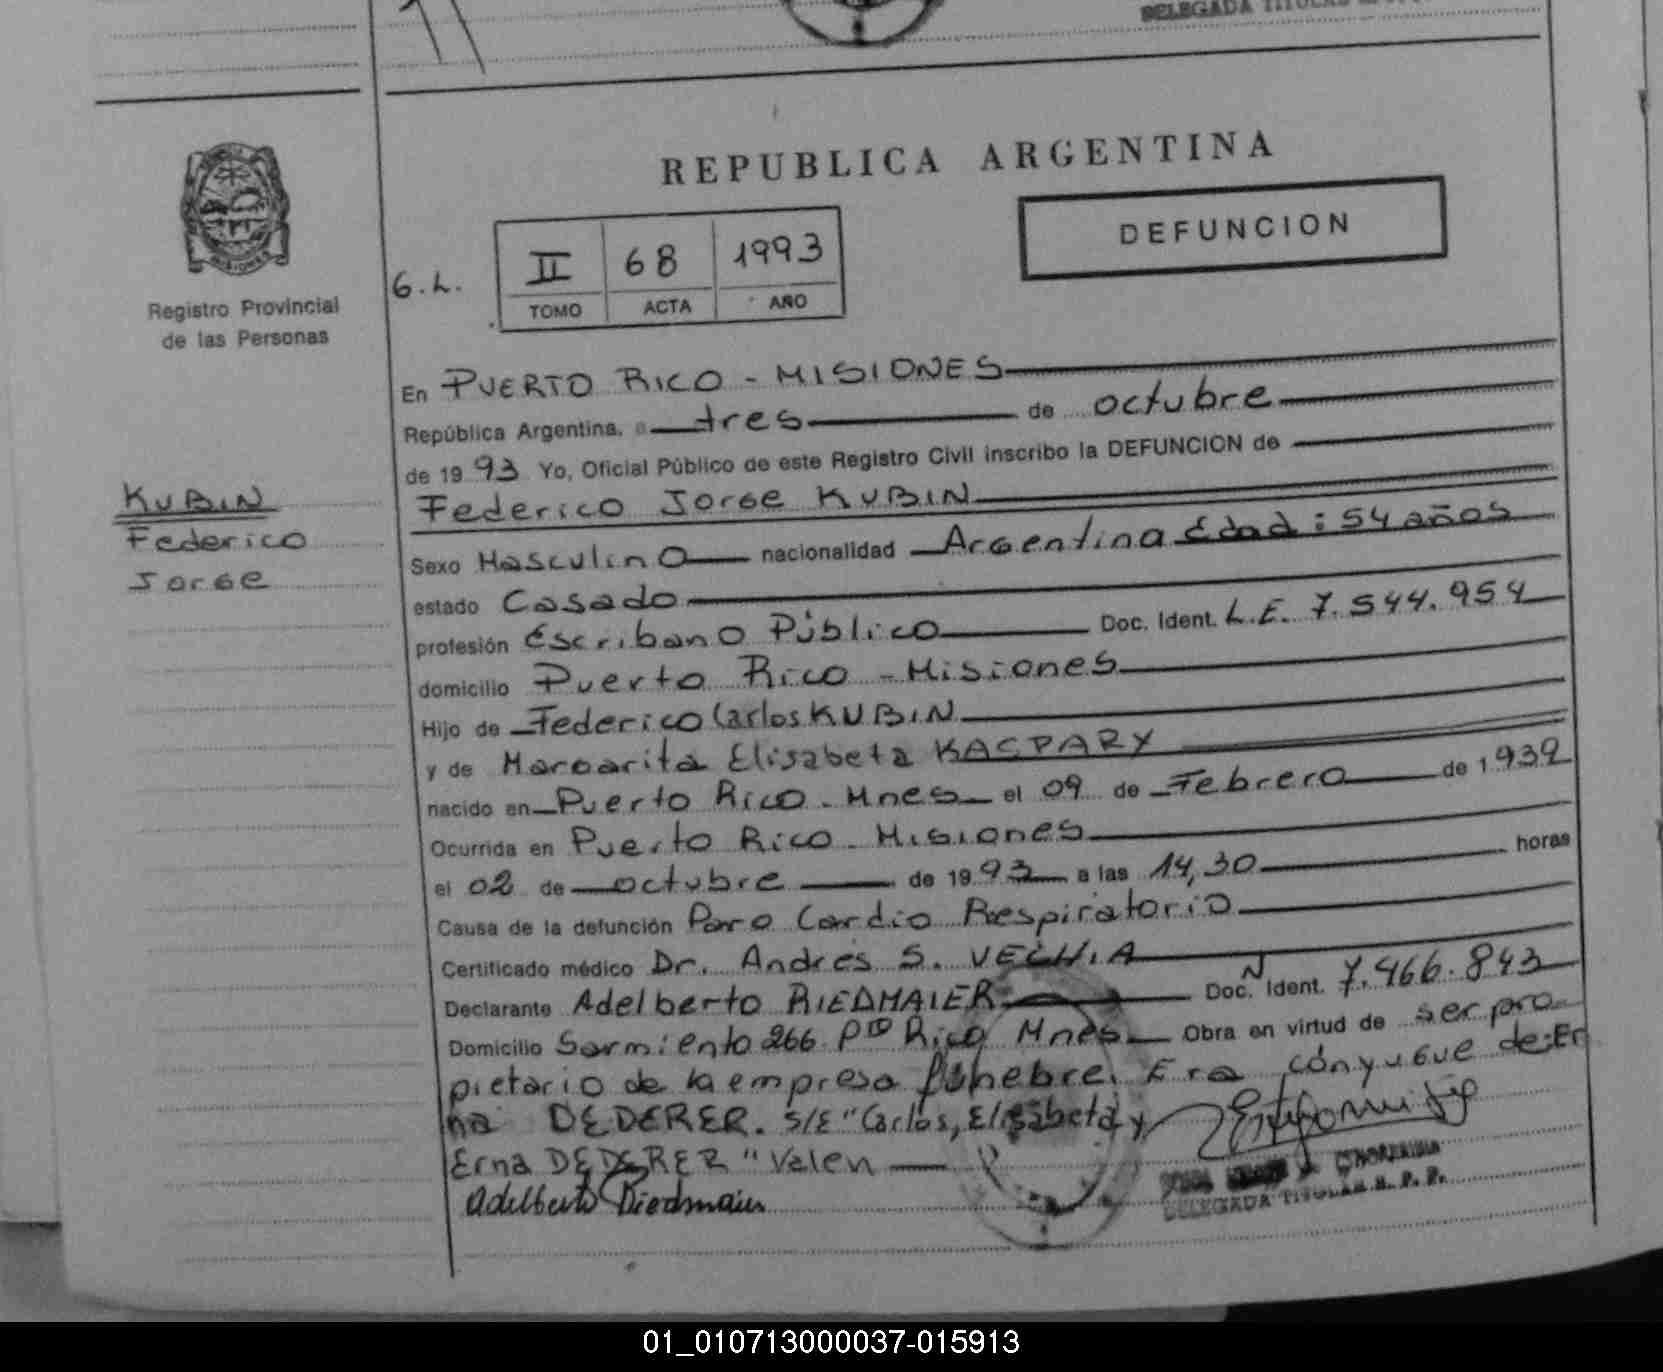 DELEGADA TITULAR
REPUBLICA ARGENTINA
DEFUNCION
G.L.
II 68 1993
TOMO ACTA AÑO
Registro Provincial
de las Personas
KUBIN
Federico
Jorge
En PUERTO RICO - MISIONES
República Argentina, a tres de octubre
de 1993 Yo, Oficial Público de este Registro Civil inscribo la DEFUNCION de
Federico Jorge KUBIN
Sexo Masculino nacionalidad Argentina Edad: 54 años
estado Casado
profesión Escribano Público Doc. Ident. L.E. 7.544.954
domicilio Puerto Rico - Misiones
Hijo de Federico Carlos KUBIN
y de Margarita Elisabeta KASPARY
nacido en Puerto Rico - Mnes el 09 de Febrero de 1939
Ocurrida en Puerto Rico - Misiones
el 02 de octubre de 1993 a las 14,30 horas
Causa de la defunción Paro Cardio Respiratorio
Certificado médico Dr. Andrés S. VECHIA
Declarante Adelberto RIEDMAIER Doc. N Ident. 7.466.843
Domicilio Sarmiento 266 Pto Rico Mnes Obra en virtud de ser pro-
pietario de la empresa fúnebre. Era cónyugue de: Er
na DEDERER. S/E "Carlos, Elisabeta y
Erna DEDERER" Valen
Adelberto Riedmaier
DELEGADA TITULAR R. P. P.
01_010713000037-015913